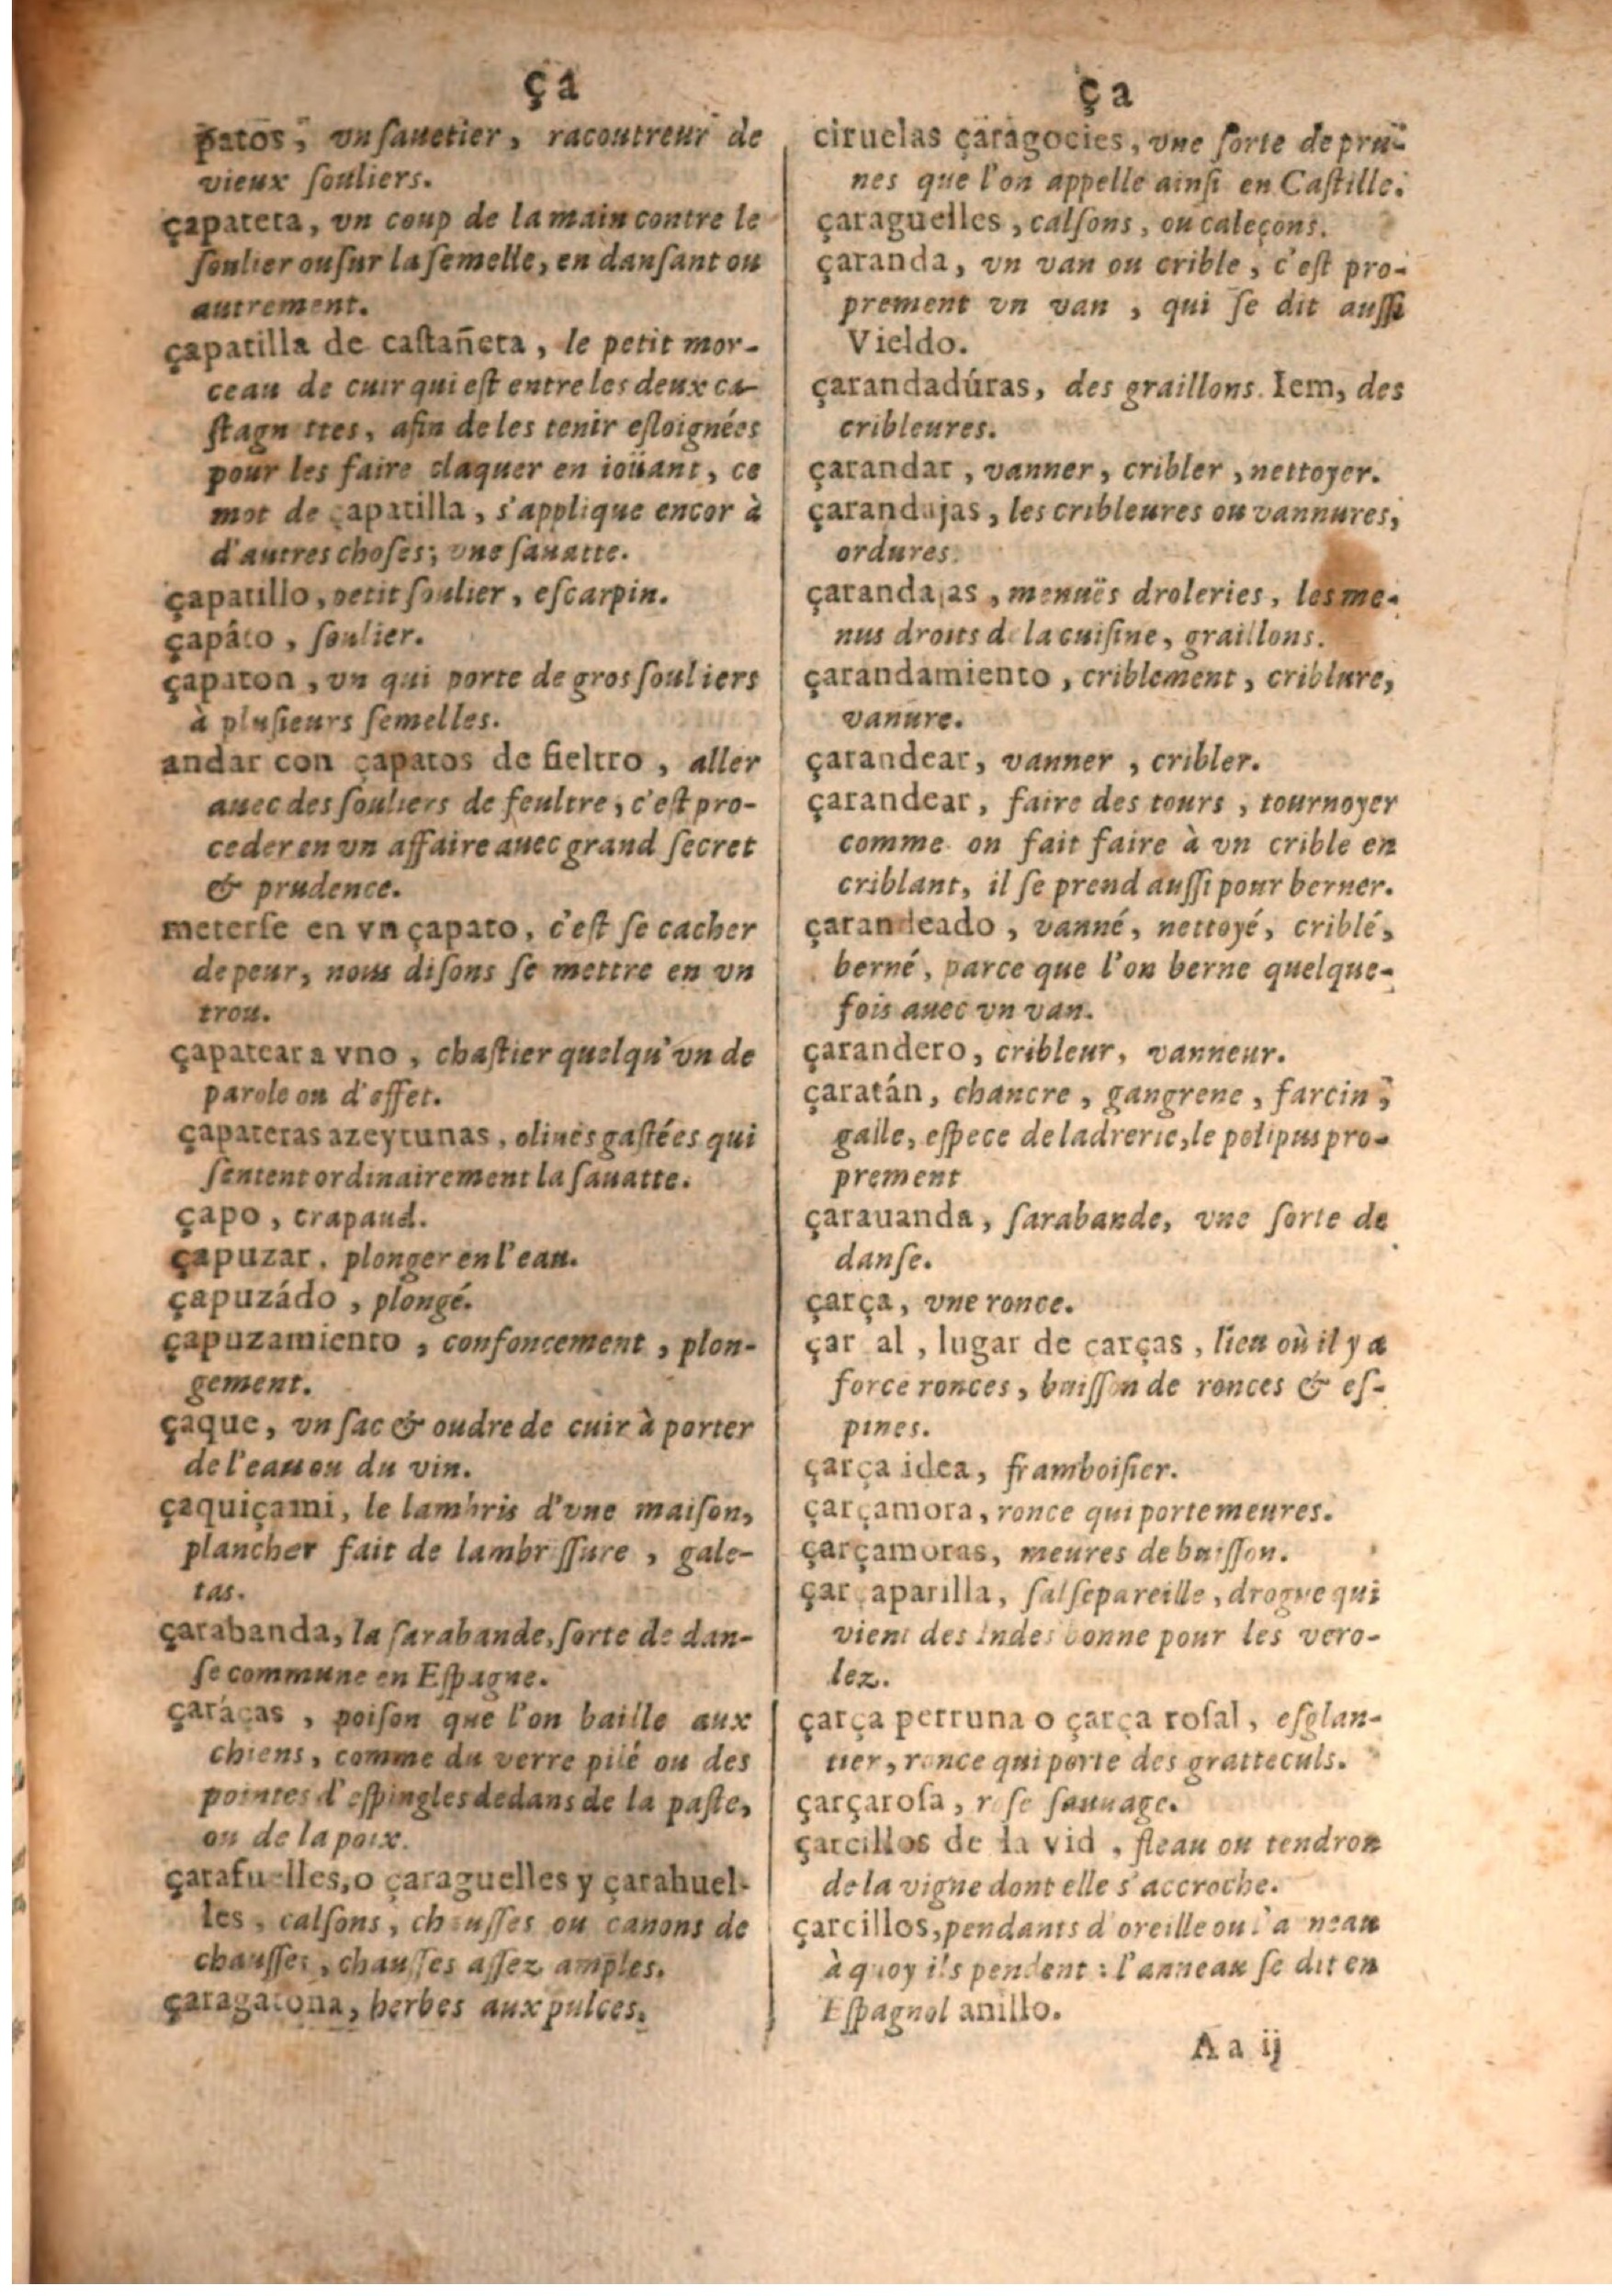 ça
patos, vn sauetier, racoutreur de
vieux ſouliers.
çapateta, vn coup de la main contre le
ſoulier ou ſur la ſemelle, en danſant ou
autrement.
çapatilla de caſtañeta, le petit mor-
ceau de cuir qui eſt entre les deux ca-
ſtagn ttes, afin de les tenir eſloignées
pour les faire claquer en ioüant, ce
mot de çapatilla, s'applique encor à
d'autres choſes; vne ſauatte.
çapatillo, petit ſoulier, eſcarpin.
çapâto, ſoulier.
çapaton, vn qui porte de gros ſouliers
à pluſieurs ſemelles.
andar con çapatos de fieltro, aller
auec des ſouliers de feultre, c'eſt pro-
ceder en vn affaire auec grand ſecret
& prudence.
meterſe en vn çapato, c'eſt ſe cacher
de peur, nous diſons ſe mettre en vn
trou.
çapatear a vno, chaſtier quelqu'vn de
parole ou d'effet.
çapateras azeytunas, oliues gaſtées qui
ſentent ordinairement la ſauatte.
çapo, crapaud.
çapuzar, plonger en l'eau.
çapuzádo, plongé.
çapuzamiento, confoncement, plon-
gement.
çaque, vn ſac & oudre de cuir à porter
de l'eau ou du vin.
çaquiçami, le lambris d'vne maiſon,
plancher fait de lambr ſſure, gale-
tas.
çarabanda, la ſarabande, ſorte de dan-
ſe commune en Eſpagne.
çaráças, poiſon que l'on baille aux
chiens, comme du verre pilé ou des
pointes d'eſpingles dedans de la paſte,
ou de la poix.
çarafuelles, o çaraguelles y çarahuel-
les, calſons, chauſſes ou canons de
chauſſes, chauſſes aſſez amples.
çaragatona, herbes aux pulces.
ça
ciruelas çaragocies, vne ſorte de pru-
nes que l'on appelle ainſi en Caſtille.
çaraguelles, calſons, ou caleçons.
çaranda, vn van ou crible, c'eſt pro-
prement vn van, qui ſe dit auſſi
Vieldo.
çarandadúras, des graillons. Iem, des
cribleures.
çarandar, vanner, cribler, nettoyer.
çarandajas, les cribleures ou vannures,
ordures.
çarandajas, menuës droleries, les me-
nus droits de la cuiſine, graillons.
çarandamiento, criblement, criblure,
vanure.
çarandear, vanner, cribler.
çarandear, faire des tours, tournoyer
comme on fait faire à vn crible en
criblant, il ſe prend auſſi pour berner.
çarandeado, vanné, nettoyé, criblé,
berné, parce que l'on berne quelque-
fois auec vn van.
çarandero, cribleur, vanneur.
çaratán, chancre, gangrene, farcin,
galle, eſpece de ladrerie, le polipus pro-
prement
çarauanda, ſarabande, vne ſorte de
danſe.
çarça, vne ronce.
çar al, lugar de çarças, lieu où il y a
force ronces, buiſſon de ronces & eſ-
pines.
çarça idea, framboiſier.
çarçamora, ronce qui porte meures.
çarçamoras, meures de buiſſon.
çarçaparilla, ſalſepareille, drogue qui
vient des Indes bonne pour les vero-
lez.
çarça perruna o çarça roſal, eſglan-
tier, ronce qui porte des gratteculs.
çarçaroſa, roſe ſauuage.
çarcillos de la vid, fleau ou tendron
de la vigne dont elle s'accroche.
çarcillos, pendants d'oreille ou l'a neau
à quoy ils pendent: l'anneau ſe dit en
Eſpagnol anillo.
A a ij